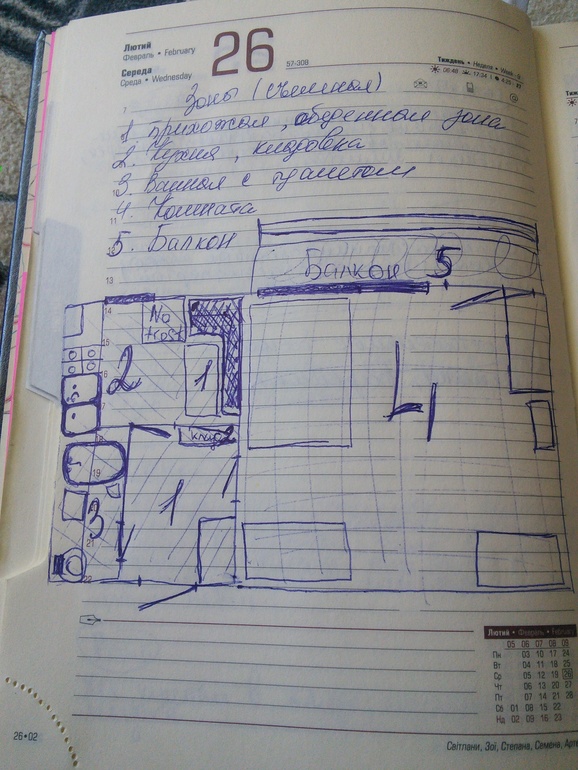 Лютий
Февраль • February
26
57-308
Середа
Среда • Wednesday
Тиждень • Неделя • Week
7
Зоны (съемная)
1 Прихожая, обеденная зона
2. Кухня, кладовка
3. Ванная с туалетом
10
4. Комната
11
5. Балкон
Балкон 5
13
14
No
frost
15
16
2
1
4
клад 2
19
1
3
21
22
Лютий • Февраль • February
05 06 07 08 09
Пн 03 10 17 24
Вт 04 11 18 25
Ср 05 12 19 26
Чт 06 13 20 27
Пт 07 14 21 28
Сб 01 08 15 22
Нд 02 09 16 23
26•02
Світлани, Зої, Степана, Семена,